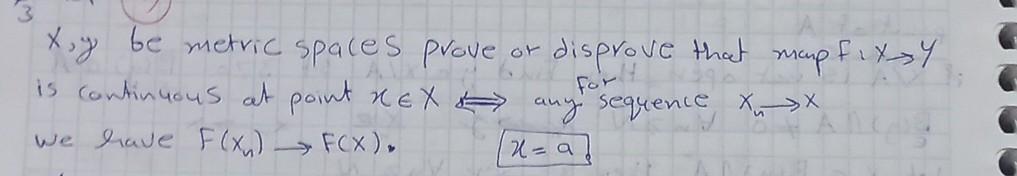 3
X,y be metric spaces prove or disprove that map F: X→Y
is continuous at point x∈X ⟺ for any sequence Xₙ→X
we have F(Xₙ)→F(X). x=a